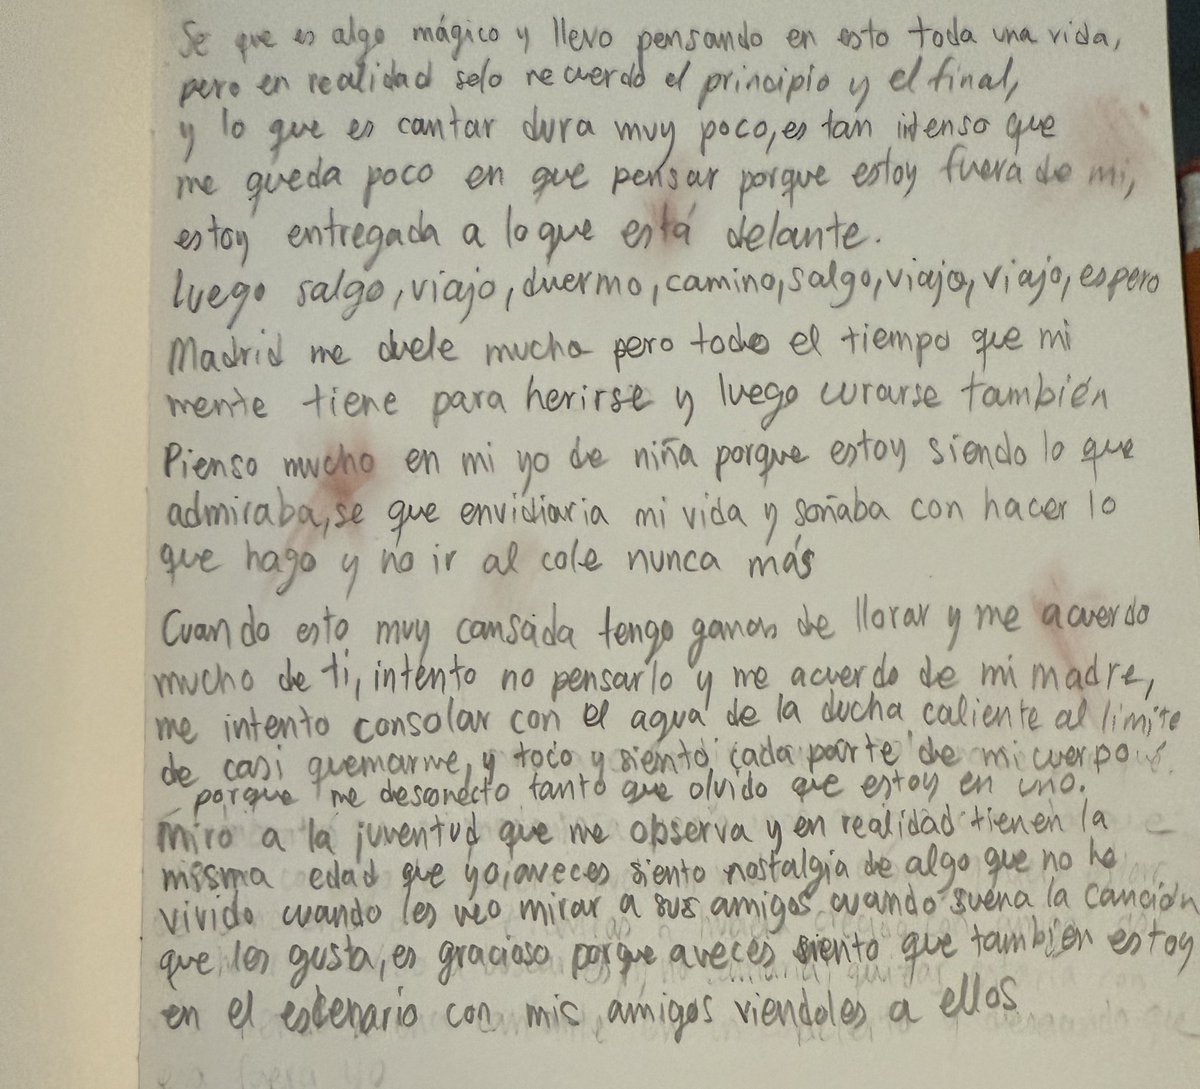 Se que es algo mágico y llevo pensando en esto toda una vida,
pero en realidad solo recuerdo el principio y el final,
y lo que es cantar dura muy poco, es tan intenso que
me queda poco en que pensar porque estoy fuera de mi,
estoy entregada a lo que está delante.
luego salgo, viajo, duermo, camino, salgo, viajo, viajo, espero
Madrid me duele mucho pero todo el tiempo que mi
mente tiene para herirse y luego curarse también
Pienso mucho en mi yo de niña porque estoy siendo lo que
admiraba, se que envidiaria mi vida y soñaba con hacer lo
que hago y no ir al cole nunca más
Cuando esto muy cansada tengo ganas de llorar y me acuerdo
mucho de ti, intento no pensarlo y me acuerdo de mi madre,
me intento consolar con el agua de la ducha caliente al limite
de casi quemarme, y toco y siento cada parte de mi cuerpo
porque me desconecto tanto que olvido que estoy en uno.
Miro a la juventud que me observa y en realidad tienen la
misma edad que yo, aveces siento nostalgia de algo que no he
vivido cuando les veo mirar a sus amigos cuando suena la canción
que les gusta, es gracioso porque aveces siento que tambien estoy
en el escenario con mis amigos viendoles a ellos